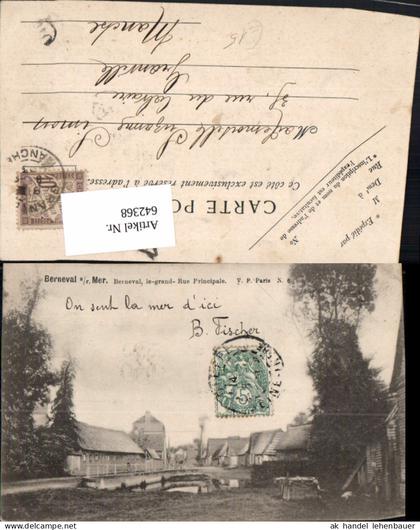 CARTE PO
Ce côté est exclusivement réservé à l'adresse.
Mademoiselle Suzanne Simon
35, rue du Calvaire
Granville
Manche
* Expédié par
M
Demt à
Rue
N°
* L'inscription du nom et de l'adresse de l'expéditeur est facultative.
Artikel Nr.
642368
Berneval s/r. Mer. Berneval, le-grand- Rue Principale. V. P. Paris N. 6
On sent la mer d'ici
B. Fischer
ak handel lehenbauer